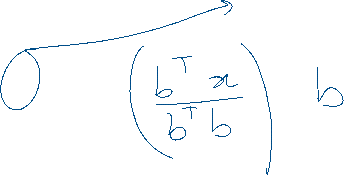 (b^T x / b^T b) b